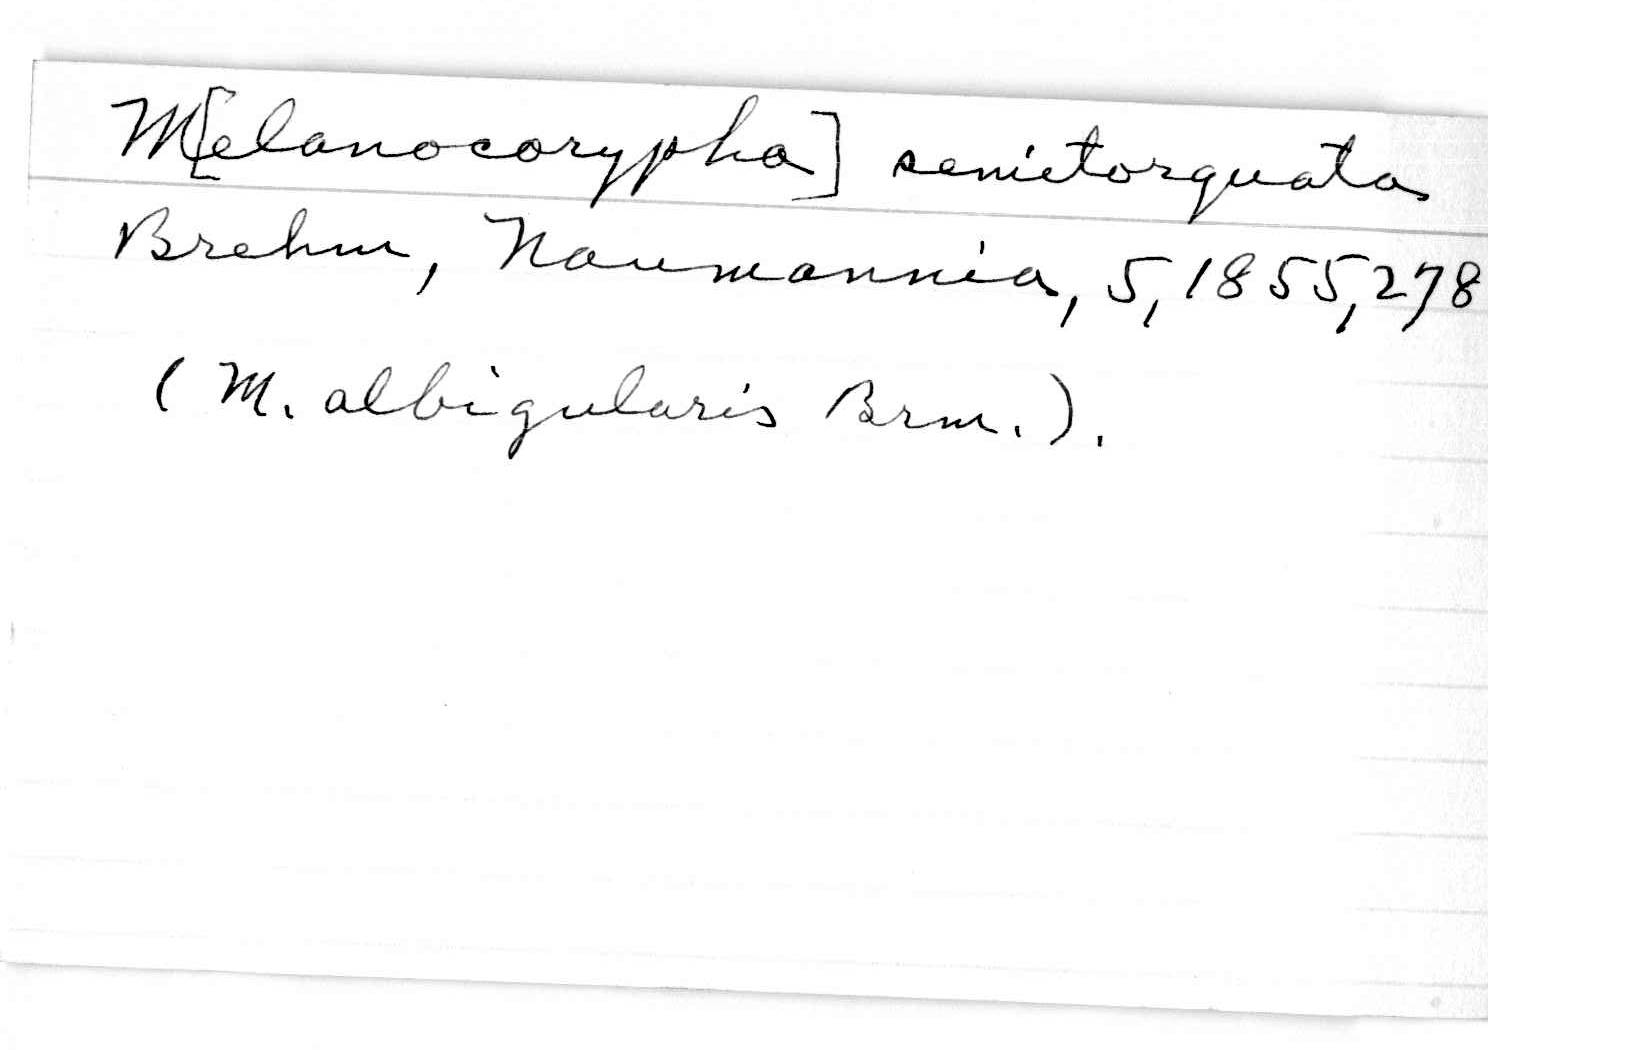 M[elanocorypha] semitorquata
Brehm, Naumannia, 5, 1855, 278
(M. albigularis Brm.).